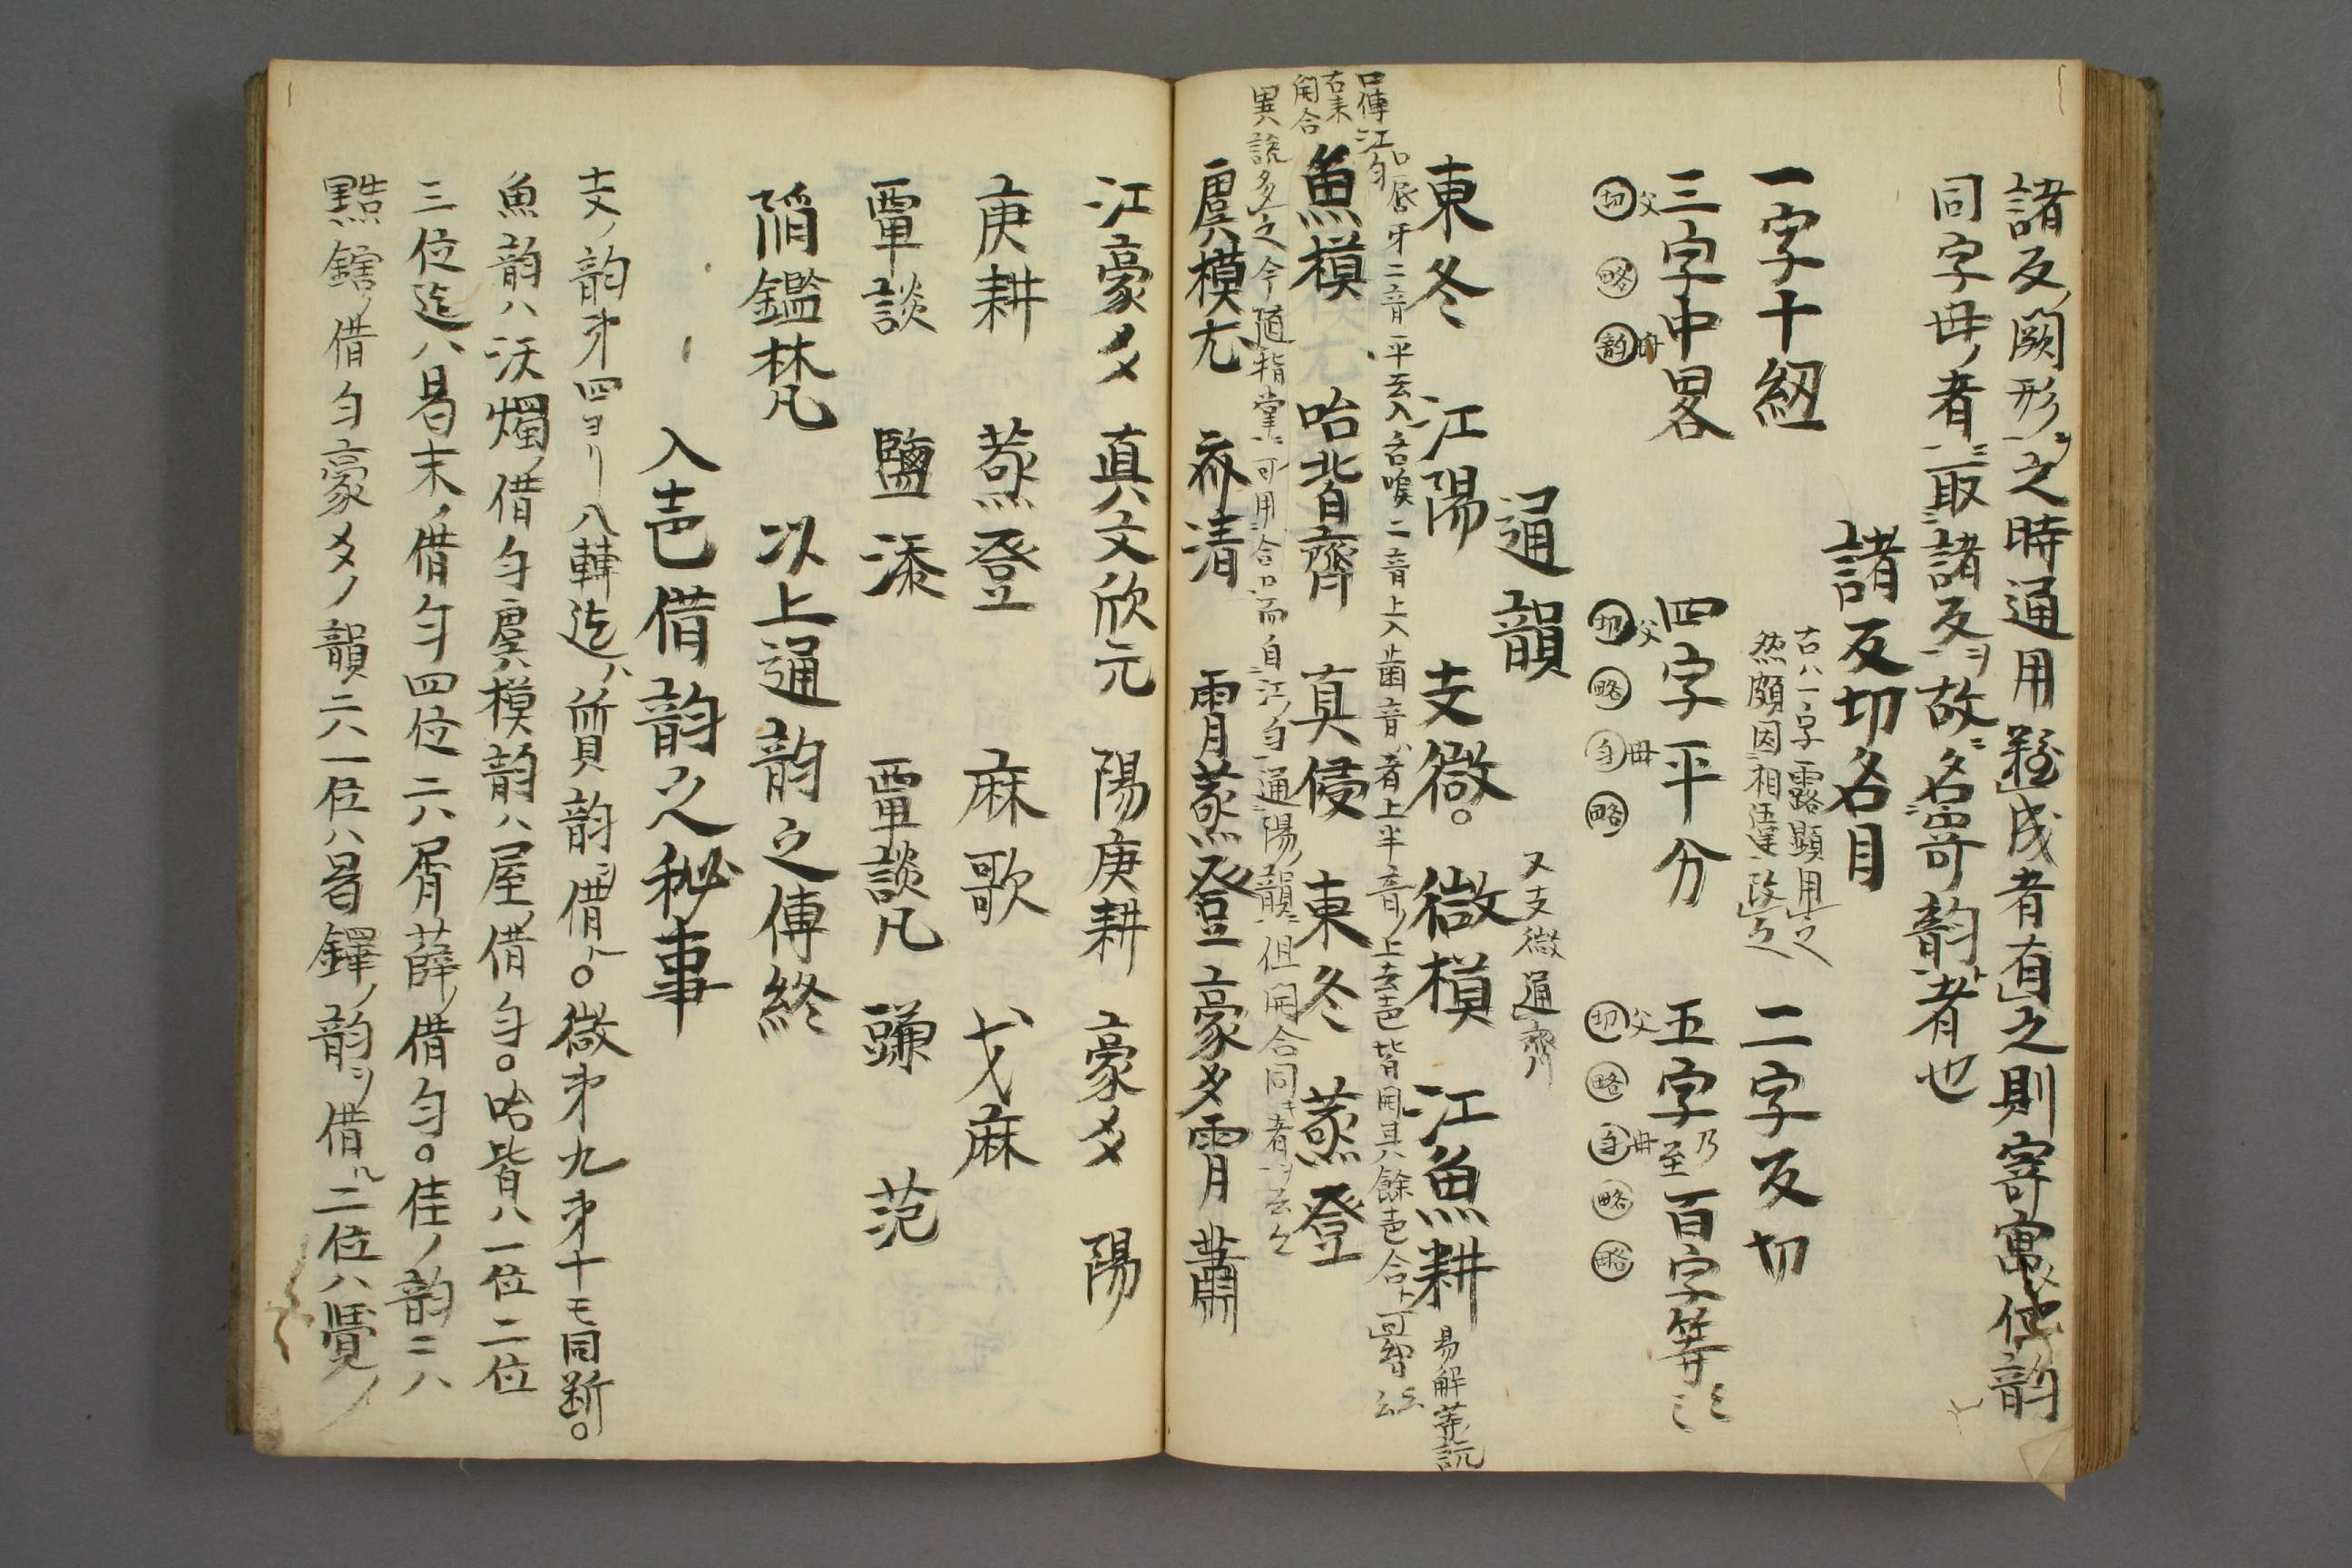 諸反ノ闕形ニ之時通用難成者有之則寄寓他韵
同字母ノ者ニ取諸反ヲ故ニ名寄韵者也
諸反切名目
一字十紐
古ハ一字露顕用之
然頗因相違改之
二字反切
三字中畧
四字平分
五字乃至百字等
切父 略 韵母
切父 略 匀母 略
切父 略 匀母 略 略
通韻
又支微通齊
東冬 江陽 支微。 微模 江魚耕
易解莚説
口傳江匀唇牙二音平去入舌喉二音上入歯音ハ者上半音ノ上去声皆開其餘声合ト可習云云
魚模 咍皆齊 真侵 東冬 蒸登
右来開合異説多之今随指掌可用合口而自江匀通陽韻但開合同キ者ヲ云々
虞模尤 齊清 霄蒸登豪爻霄蕭
江豪爻 真文欣元 陽庚耕 豪爻 陽
庚耕 蒸登 麻歌 戈麻
覃談 鹽添 覃談凡 鎌 范
䧟鑑梵 以上通韵之傳終
入声借韵之秘事
支ノ韵第四ヨリ八轉迄ハ質韵ヲ借ト。微第九第十モ同断。
魚韵ハ沃燭ノ借匀虞模韵ハ屋ノ借匀。咍皆ハ一位二位
三位迄ハ曷末ノ借匀四位ニハ屑薛ノ借匀。佳ノ韵ニハ
黠鎋ノ借匀豪爻ノ韻ニハ一位ハ曷鐸ノ韵ヲ借ル二位ハ覺ノ